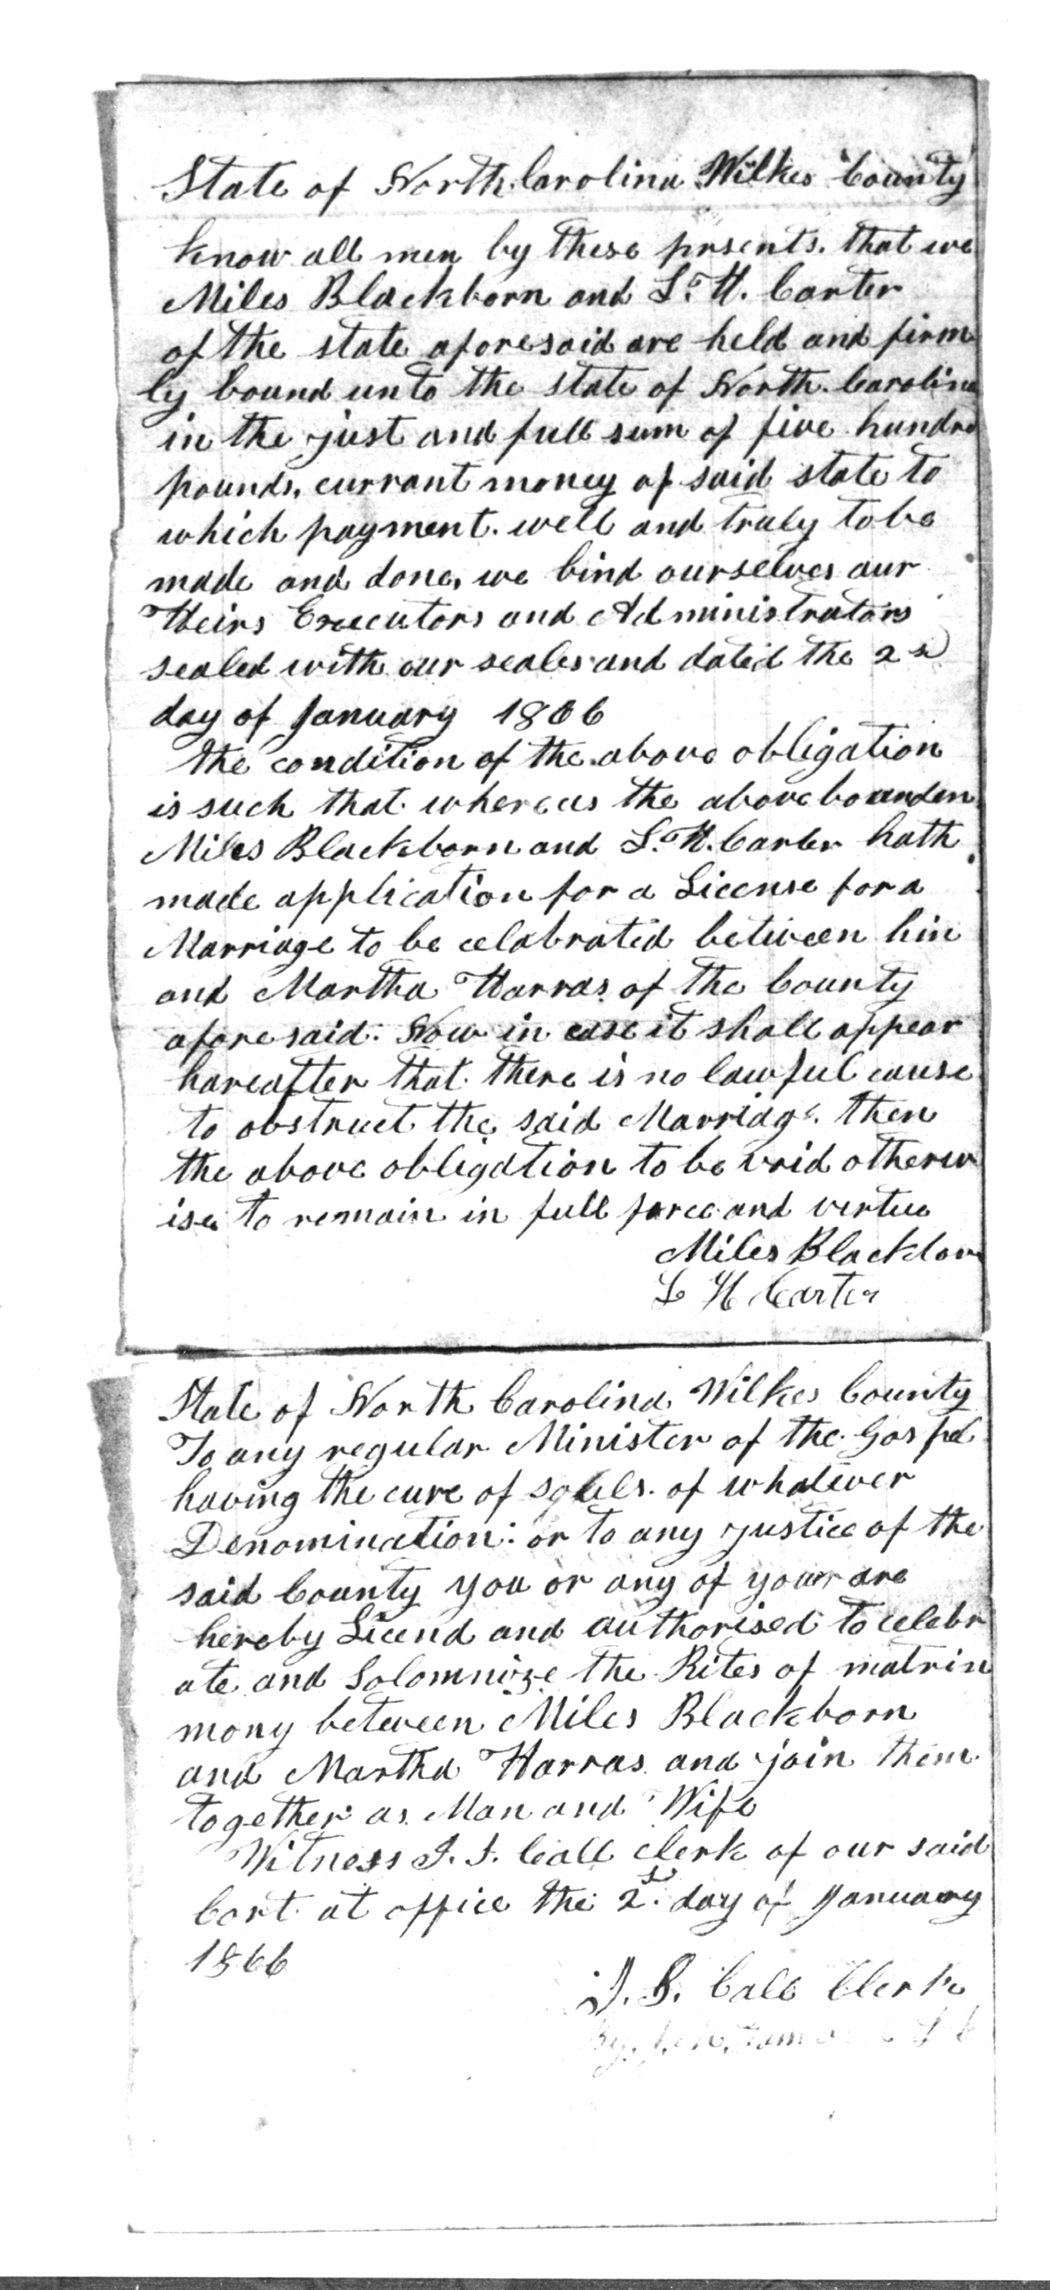 State of North Carolina Wilkes County
know all men by these prsents. that we
Miles Blackborn and L. H. Carter
of the state aforesaid are held and firm
ly bound unto the state of North Carolina
in the just and full sum of five hundre
pounds, currant money of said state to
which payment. well and truly to be
made and done, we bind ourselves our
Heirs Executors and Administrators
sealed with our seales and dated the 2nd
day of January 1866
the condition of the above obligation
is such that whereas the above bounden
Miles Blackborn and L. H. Carter hath
made application for a License for a
Marriage to be celabrated between him
and Martha Harras of the County
afore said. Now in case it shall appear
hareafter that there is no lawful cause
to obstruct the said Marriage. then
the above obligation to be void otherw
ise to remain in full force and vertue
Miles Blackborn
L H Carter
State of North Carolina Wilkes County
To any regular Minister of the Gospel
having the cure of soules of whatever
Denomination: or to any justice of the
said County you or any of your are
hereby Licend and authorised to celebr
ate and Solomnize the Rites of matrin
mony between Miles Blackborn
and Martha Harras and join them
together as Man and Wife
Witness J. S. Call clerk of our said
Cort at office the 2d day of January
1866
J. S. Call Clerk
By